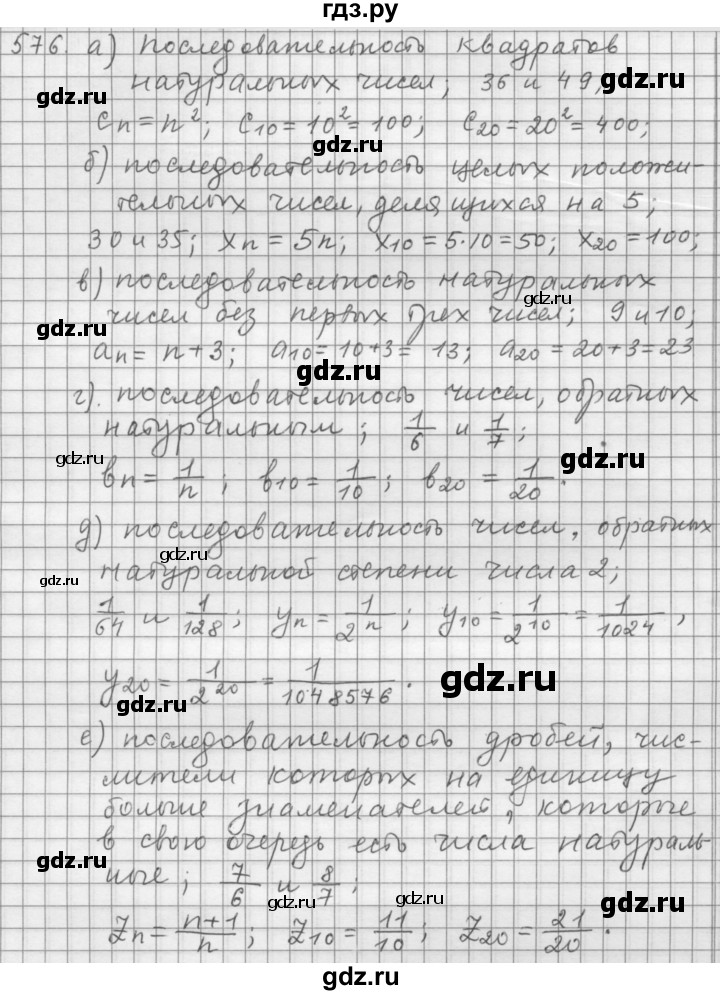 гдз.ру
576. а) последовательность квадратов
натуральных чисел; 36 и 49;
gdz.ru
gdz.ru
cn = n²; c10 = 10² = 100; c20 = 20² = 400;
gdz.ru
б) последовательность целых положи-
тельных чисел, делящихся на 5;
gdz.ru
gdz.ru
30 и 35; xn = 5n; x10 = 5·10 = 50; x20 = 100;
в) последовательность натуральных
gdz.ru
чисел без первых трех чисел; 9 и 10;
gdz.ru
an = n+3; a10 = 10+3 = 13; a20 = 20+3 = 23
gdz.ru
г). последовательность чисел, обратных
натуральным; 1/6 и 1/7;
gdz.ru
gdz.ru
bn = 1/n; b10 = 1/10; b20 = 1/20.
д) последовательность чисел, обратных
gdz.ru
натуральной степени числа 2;
gdz.ru
1/64 и 1/128; yn = 1/2^n; y10 = 1/2^10 = 1/1024,
gdz.ru
y20 = 1/2^20 = 1/1048576.
gdz.ru
gdz.ru
е) последовательность дробей, чис-
лители которых на единицу
больше знаменателей, которые
в свою очередь есть числа натураль-
gdz.ru
ные; 7/6 и 8/7;
gdz.ru
gdz.ru
gdz.ru
zn = n+1/n; z10 = 11/10; z20 = 21/20.
gdz.ru
gdz.ru